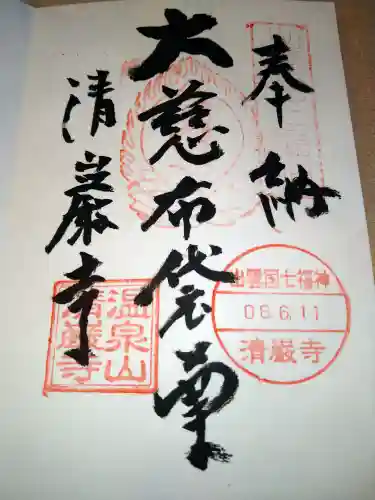 奉納
大慈布袋尊
清巌寺
出雲国七福神
08.6.11
清巌寺
温泉山
清巌寺